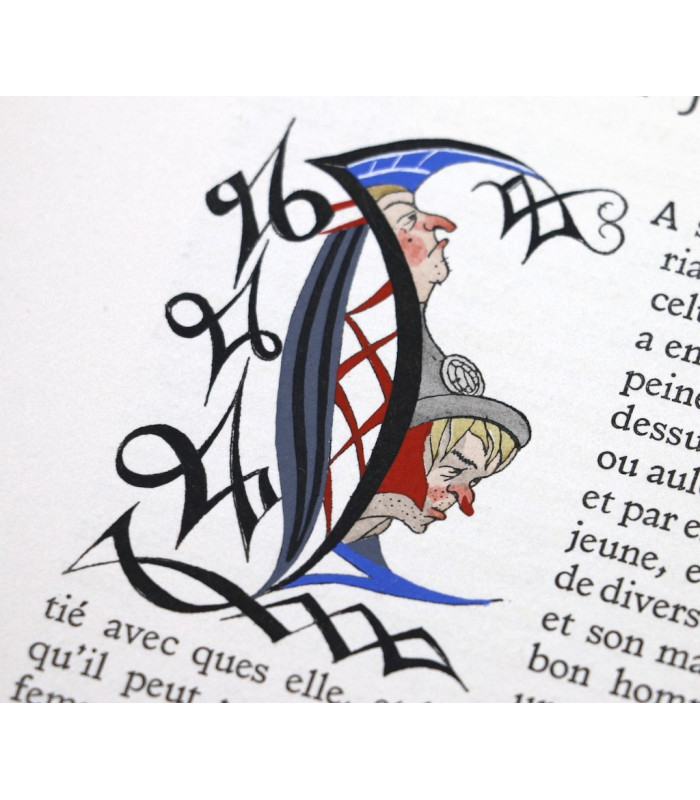 LA s
ria
cel
a en
peine
dessu
ou aul
et par e
jeune, e
de divers
et son ma
bon hom
tié avec ques elle,
qu'il peut
fem